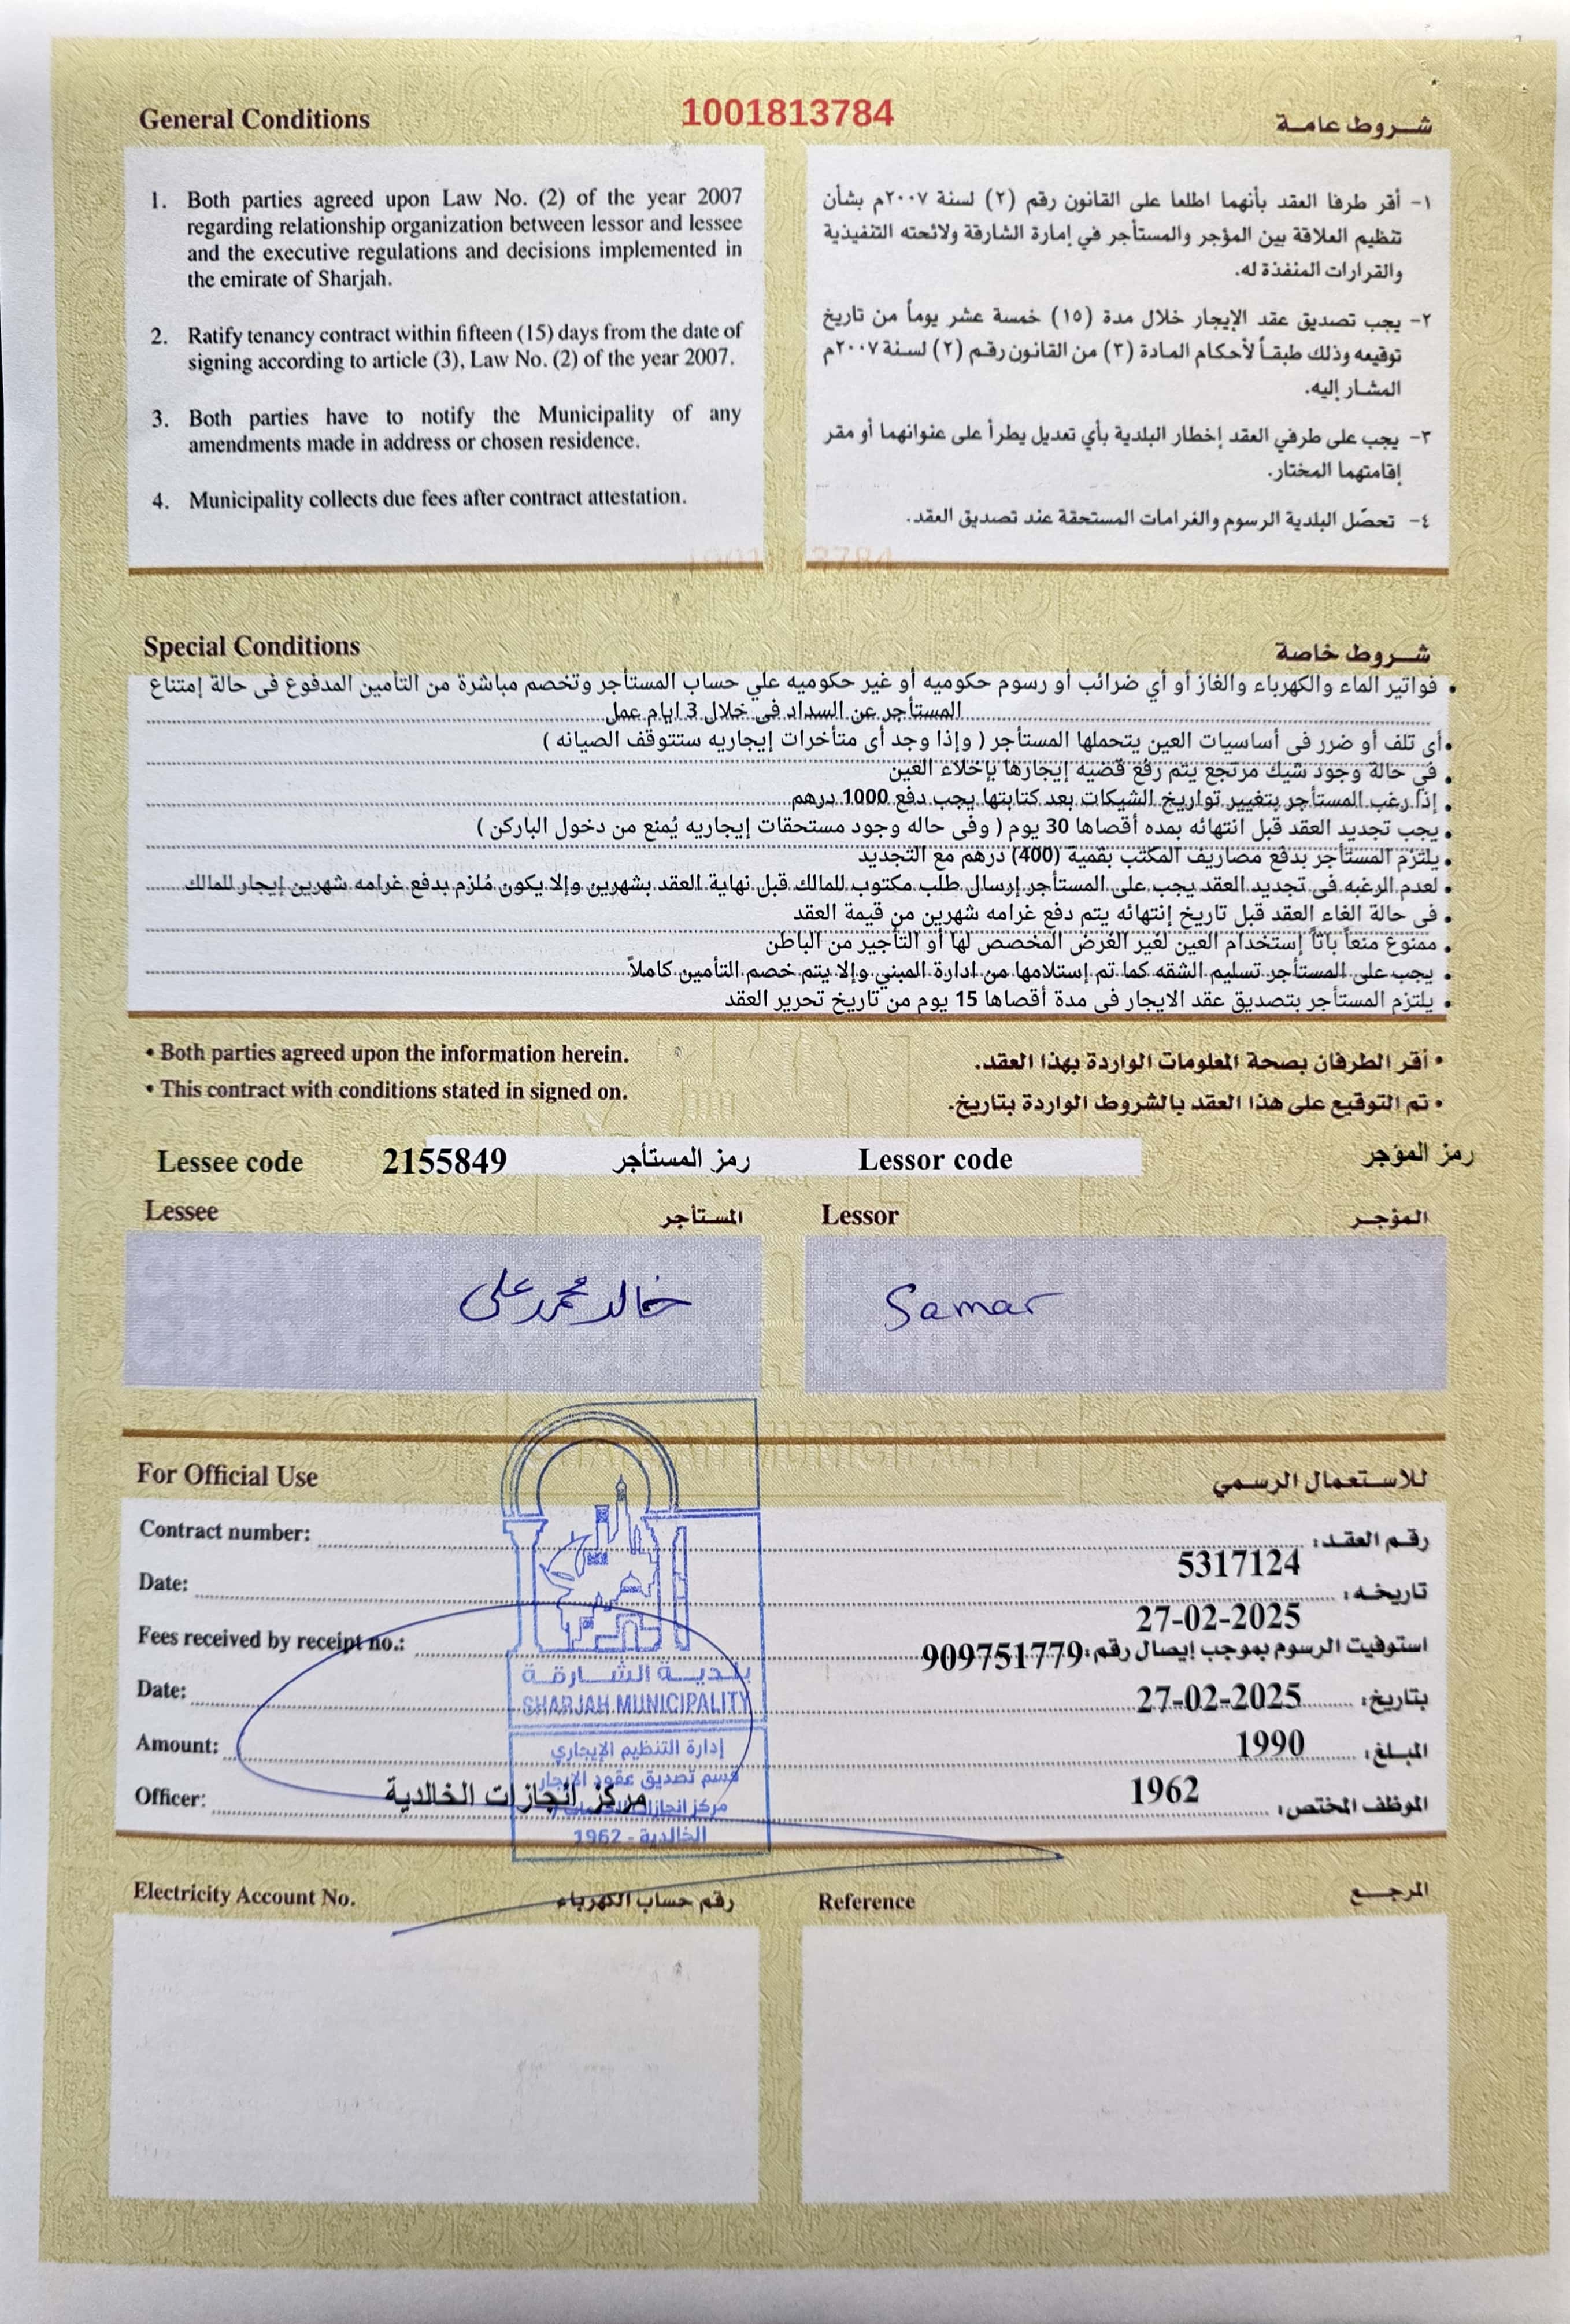 General Conditions
1001813784
شروط عامة
1. Both parties agreed upon Law No. (2) of the year 2007
regarding relationship organization between lessor and lessee
and the executive regulations and decisions implemented in
the emirate of Sharjah.
2. Ratify tenancy contract within fifteen (15) days from the date of
signing according to article (3), Law No. (2) of the year 2007.
3. Both parties have to notify the Municipality of any
amendments made in address or chosen residence.
4. Municipality collects due fees after contract attestation.
١- أقر طرفا العقد بأنهما اطلعا على القانون رقم (٢) لسنة ٢٠٠٧م بشأن
تنظيم العلاقة بين المؤجر والمستأجر في إمارة الشارقة ولائحته التنفيذية
والقرارات المنفذة له.
٢- يجب تصديق عقد الإيجار خلال مدة (١٥) خمسة عشر يوماً من تاريخ
توقيعه وذلك طبقاً لأحكام المادة (٣) من القانون رقم (٢) لسنة ٢٠٠٧م
المشار إليه.
٣- يجب على طرفي العقد إخطار البلدية بأي تعديل يطرأ على عنوانهما أو مقر
إقامتهما المختار.
٤- تحصّل البلدية الرسوم والغرامات المستحقة عند تصديق العقد.
1001813784
Special Conditions
شروط خاصة
• فواتير الماء والكهرباء والغاز أو أي ضرائب أو رسوم حكوميه أو غير حكوميه علي حساب المستأجر وتخصم مباشرة من التأمين المدفوع فى حالة إمتناع
المستأجر عن السداد فى خلال 3 ايام عمل
• أى تلف أو ضرر فى أساسيات العين يتحملها المستأجر ( وإذا وجد أى متأخرات إيجاريه ستتوقف الصيانه )
• في حالة وجود شيك مرتجع يتم رفع قضيه إيجارها بإخلاء العين
• إذا رغب المستأجر بتغيير تواريخ الشيكات بعد كتابتها يجب دفع 1000 درهم
• يجب تجديد العقد قبل انتهائه بمده أقصاها 30 يوم ( وفى حاله وجود مستحقات إيجاريه يُمنع من دخول الباركن )
• يلتزم المستأجر بدفع مصاريف المكتب بقمية (400) درهم مع التجديد
• لعدم الرغبه فى تجديد العقد يجب على المستأجر إرسال طلب مكتوب للمالك قبل نهاية العقد بشهرين وإلا يكون مُلزم بدفع غرامه شهرين إيجار للمالك
• فى حالة الغاء العقد قبل تاريخ إنتهائه يتم دفع غرامه شهرين من قيمة العقد
• ممنوع منعاً باتاً إستخدام العين لغير الغرض المخصص لها أو التأجير من الباطن
• يجب على المستأجر تسليم الشقه كما تم إستلامها من ادارة المبني وإلا يتم خصم التأمين كاملاً
• يلتزم المستأجر بتصديق عقد الايجار فى مدة أقصاها 15 يوم من تاريخ تحرير العقد
• Both parties agreed upon the information herein.
• This contract with conditions stated in signed on.
• أقر الطرفان بصحة المعلومات الواردة بهذا العقد.
• تم التوقيع على هذا العقد بالشروط الواردة بتاريخ.
Lessee code 2155849 رمز المستأجر
Lessor code رمز المؤجر
Lessee المستأجر
Lessor المؤجر
خالد محمد على
Samar
SHARJAH MUNICIPALITY
For Official Use
للاستعمال الرسمي
Contract number: رقم العقد:
5317124
Date: تاريخه:
27-02-2025
Fees received by receipt no.: 909751779 استوفيت الرسوم بموجب إيصال رقم:
Date: 27-02-2025 بتاريخ:
Amount: 1990 المبلغ:
Officer: مركز انجازات الخالدية 1962 الموظف المختص:
بلدية الشارقة
SHARJAH MUNICIPALITY
إدارة التنظيم الإيجاري
قسم تصديق عقود الإيجار
مركز انجازات
الخالدية - 1962
Electricity Account No. رقم حساب الكهرباء
Reference المرجع